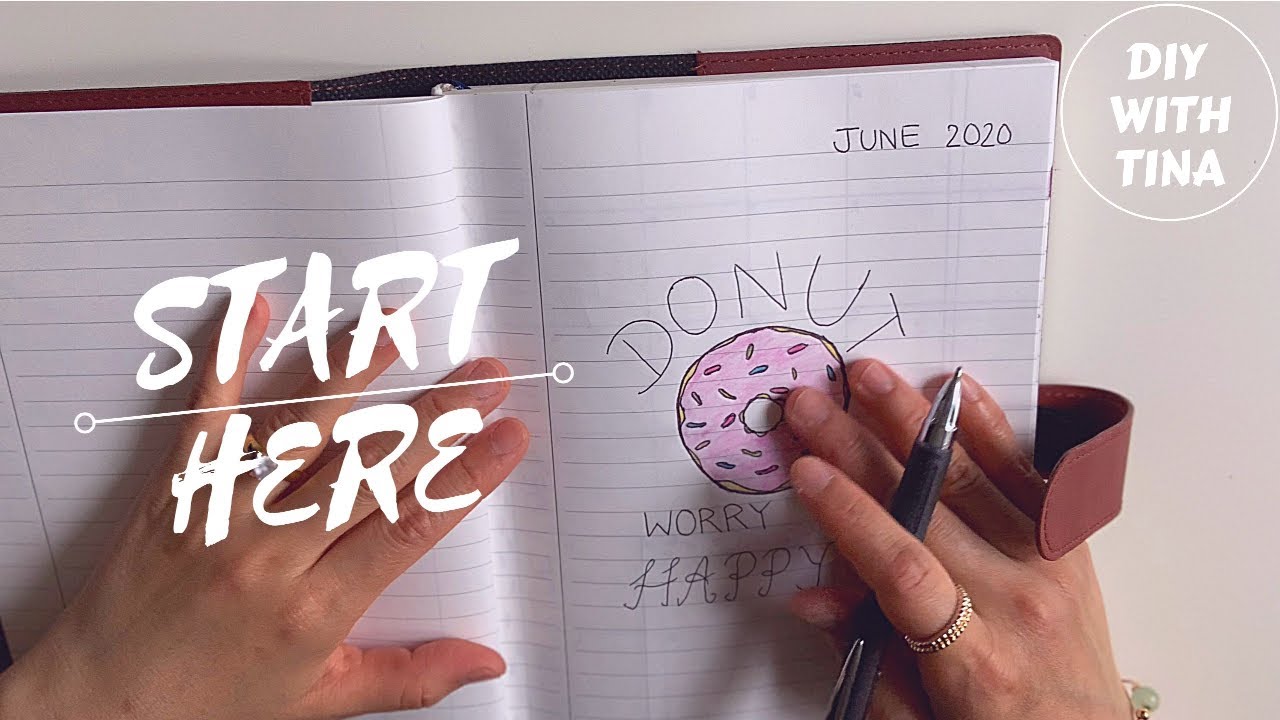 START
HERE
JUNE 2020
DONUT
WORRY
HAPPY
DIY
WITH
TINA